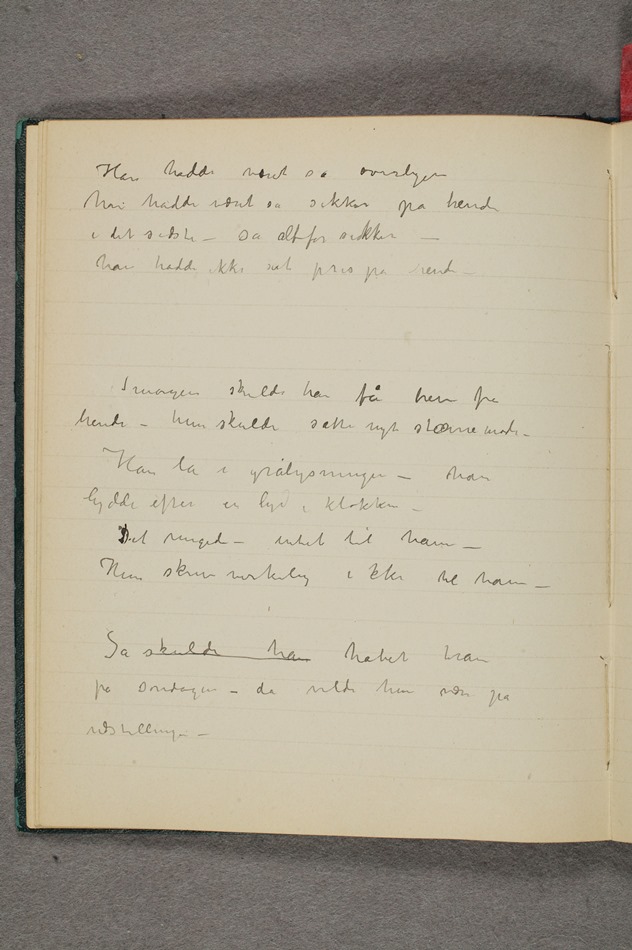 Han hadde været så overlegen
han hadde været så sikker på hende
i det sidste – så altfor sikker –
han hadde ikke sat pris på hende –
I morgen skulde han få brev fra
hende – hun skulde sætte nyt stævnemøde –
Han lå i grålysningen – han
lydde efter en lyd i klokken –
Det ringed – intet til ham –
Hun skrev virkelig ikke til ham –
Så skulde han håbet han
på søndagen – da vilde hun være på
udstillingen –